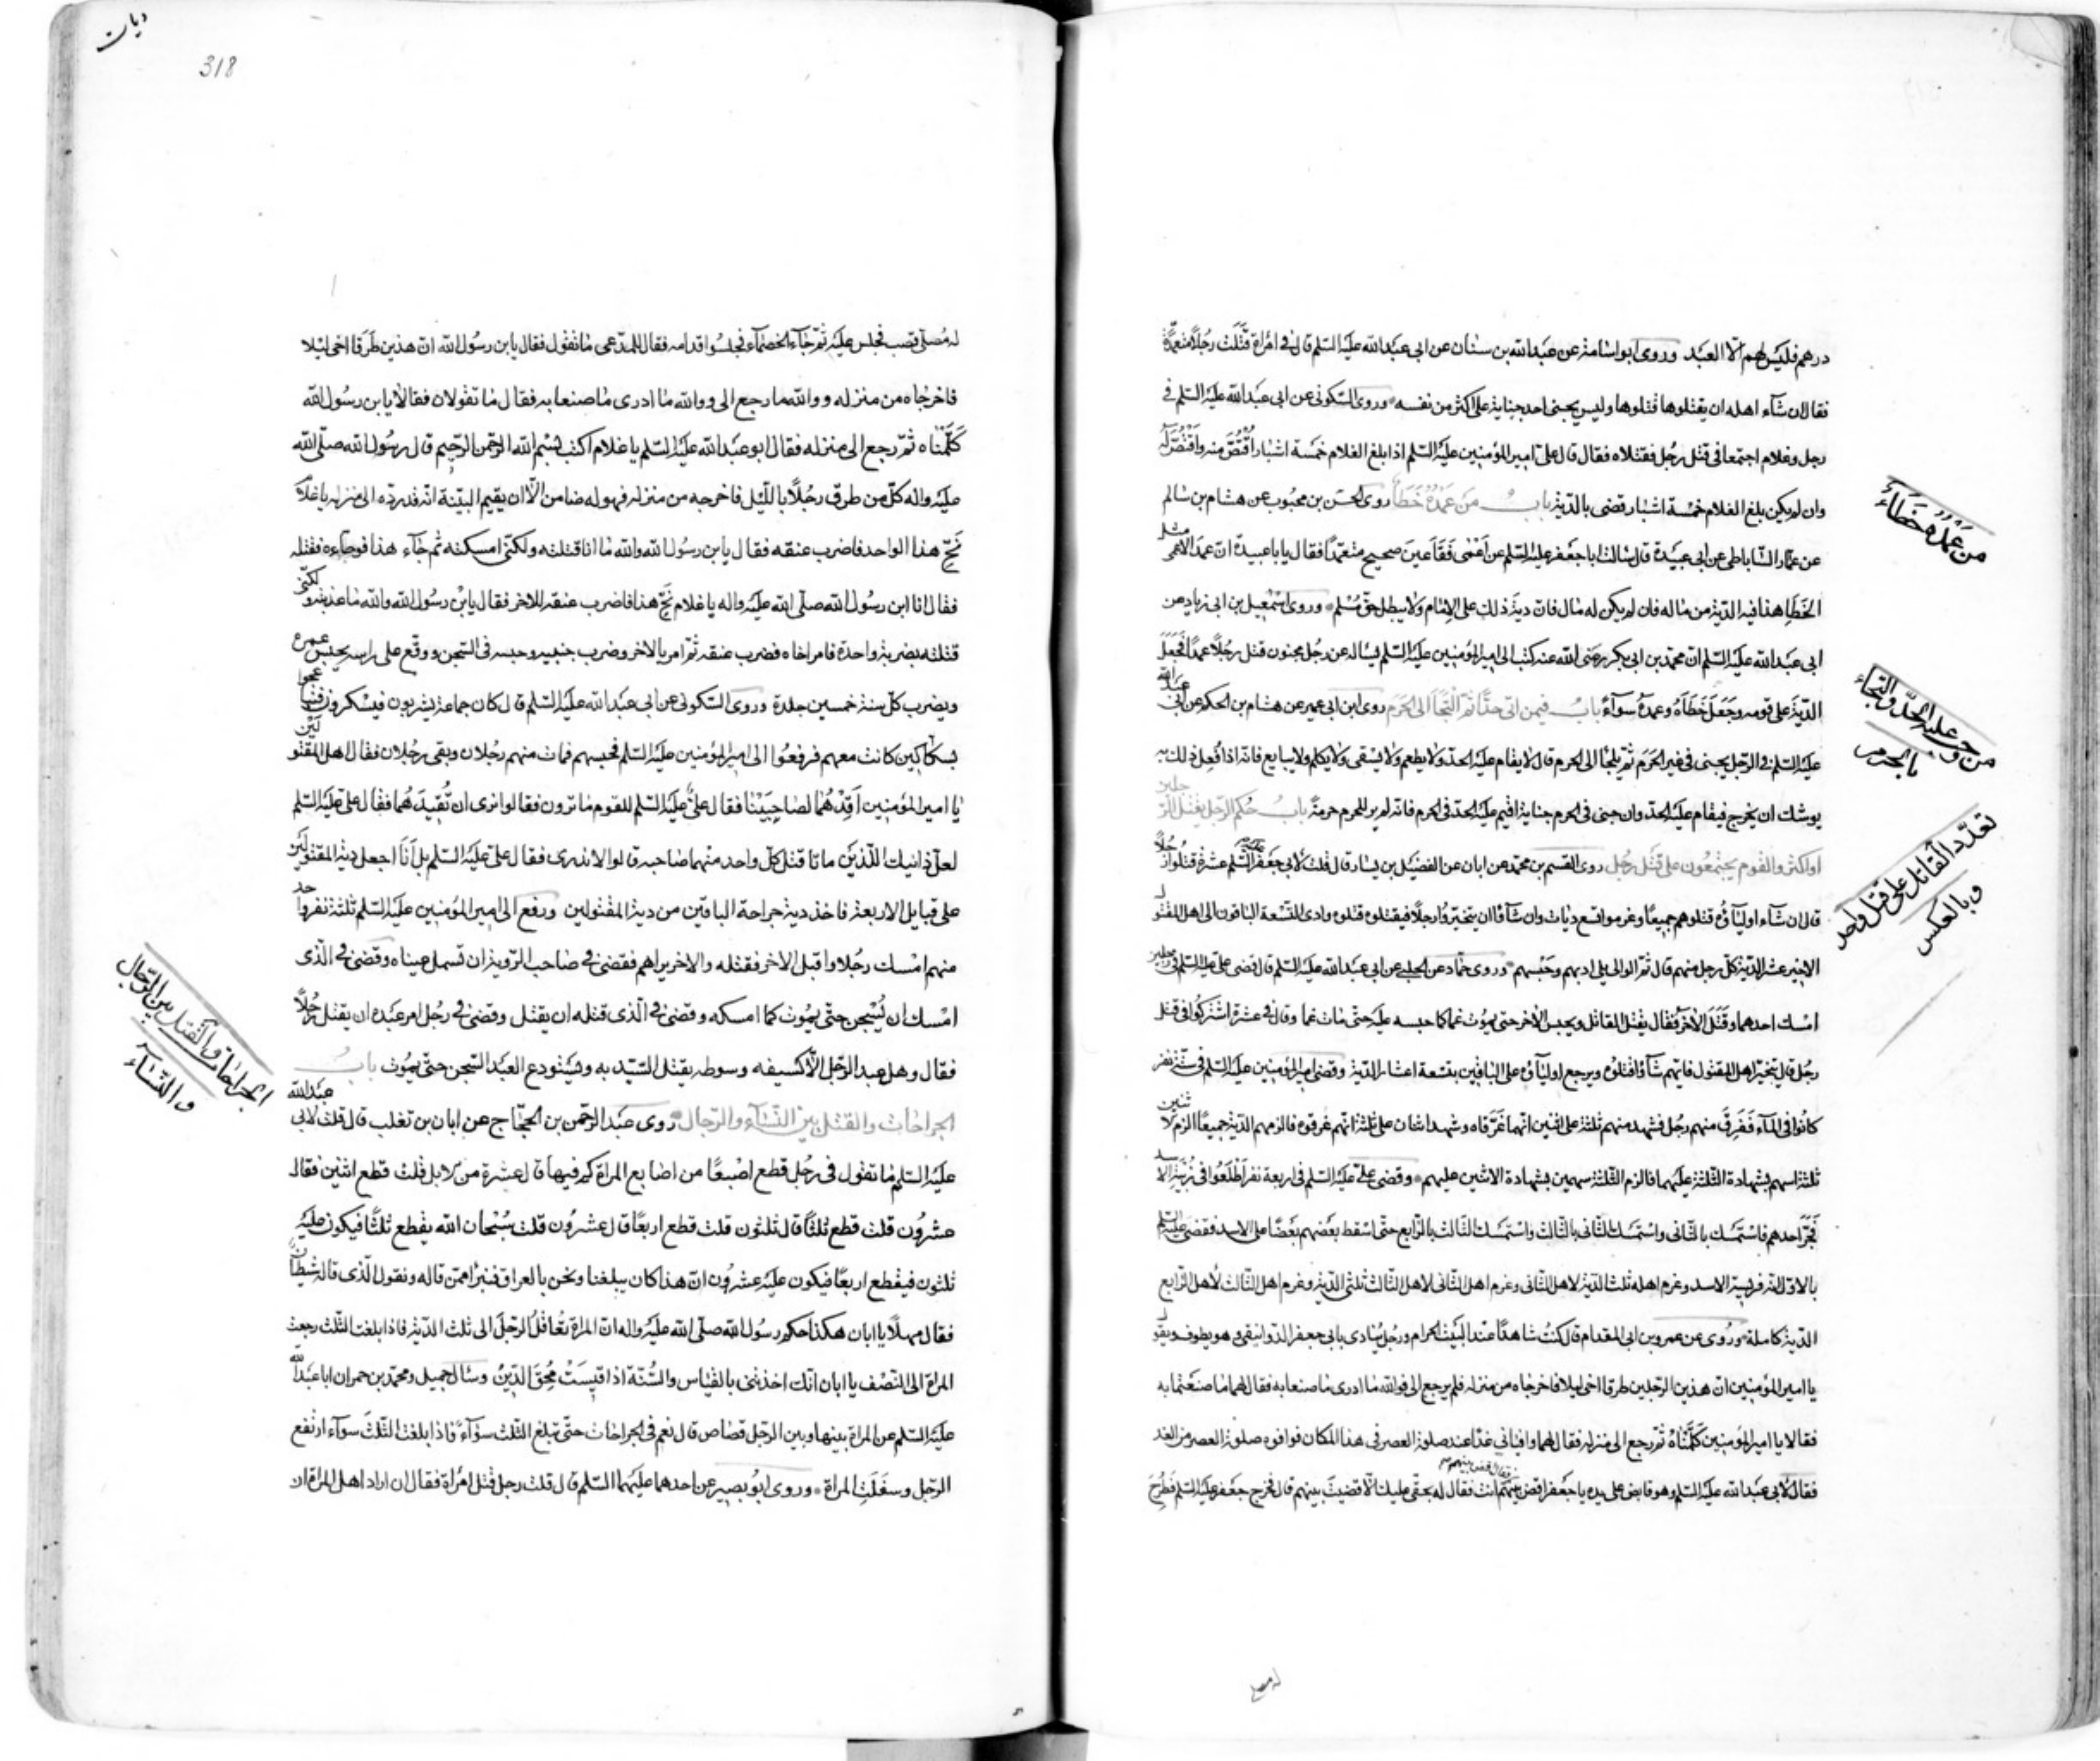 درهم فليس لهم الا العبد وروى ابو اسامة عن عبدالله بن سنان عن ابى عبدالله عليه السلم قال فى امرأة قتلت رجلا متعمدة
فقال ان شاء اهله ان يقتلوها قتلوها وليس يجنى احد جناية على اكثر من نفسه وروى السكونى عن ابى عبدالله عليه السلم فى
رجل وغلام اجتمعا فى قتل رجل فقتلاه فقال قال على امير المؤمنين عليه السلم اذا بلغ الغلام خمسة اشبار اقتص منه واقتص له
وان لم يكن بلغ الغلام خمسة اشبار قضى بالدية باب من عمده خطأ روى الحسن بن محبوب عن هشام بن سالم
عن عمار الساباطى عن ابى عبيدة قال سالت ابا جعفر عليه السلم عن اعمى فقأ عين صحيح متعمدا فقال يا با عبيدة ان عمد الاعمى مثل
الخطا هذا فيه الدية من ماله فان لم يكن له مال فان دية ذلك على الامام ولا يبطل حق مسلم وروى اسمعيل بن ابى زياد عن
ابى عبدالله عليه السلم ان محمد بن ابى بكر رضى الله عنه كتب الى امير المؤمنين عليه السلم يساله عن رجل مجنون قتل رجلا عمدا فجعل
الدية على قومه وجعل خطاه وعمده سوآء باب فيمن اتى حدا ثم التجا الى الحرم روى ابن ابى عمير عن هشام بن الحكم عن ابى عبدالله
عليه السلم فى الرجل يجنى فى غير الحرم ثم يلجا الى الحرم قال لا يقام عليه الحد ولا يطعم ولا يسقى ولا يكلم ولا يبايع فانه اذا فعل ذلك به
يوشك ان يخرج فيقام عليه الحد وان جنى فى الحرم جناية اقيم عليه الحد فى الحرم فانه لم ير للحرم حرمة باب حكم الرجل يقتل الرجلين
او اكثر والقوم يجتمعون على قتل رجل روى القسم بن محمد عن ابان عن الفضيل بن يسار قال قلت لابى جعفر عليه السلم عشرة قتلوا رجلا
قال ان شاء اوليآؤه قتلوهم جميعا وغرموا تسع ديات وان شآؤا ان يتخيروا رجلا فيقتلوه قتلوه وادى التسعة الباقون الى اهل المقتول
الاخير عشر الدية كل رجل منهم قال ثم الوالى يلى ادبهم وحبسهم وروى حماد عن الحلبى عن ابى عبدالله عليه السلم قال قضى على عليه السلم فى رجلين
امسك احدهما وقتل الآخر فقال يقتل القاتل ويحبس الاخر حتى يموت غما كما حبسه عليه حتى مات غما وقال فى عشرة اشتركوا فى قتل
رجل قال يتخير اهل المقتول فايهم شآؤا قتلوه ويرجع اوليآؤه على الباقين بتسعة اعشار الدية وقضى امير المؤمنين عليه السلم فى ستة نفر
كانوا فى المآء فغرق منهم رجل فشهد منهم ثلثة على اثنين انهما غرقاه وشهد اثنان على ثلثة انهم غرقوه فالزمهم الدية جميعا الزم الاثنين
ثلثة اسهم بشهادة الثلثة عليهما فالزم الثلثة سهمين بشهادة الاثنين عليهم وقضى على عليه السلم فى اربعة نفر اطلعوا فى زبية الاسد
فخر احدهم فاستمسك بالثانى واستمسك الثانى بالثالث واستمسك الثالث بالرابع حتى اسقط بعضهم بعضا على الاسد فقضى عليه السلم
بالاول انه فريسة الاسد وغرم اهله ثلث الدية لاهل الثانى وغرم اهل الثانى لاهل الثالث ثلثى الدية وغرم اهل الثالث لاهل الرابع
الدية كاملة وروى عن عمرو بن ابى المقدام قال كنت شاهدا عند البيت الحرام ورجل ينادى بابى جعفر الدوانيقى وهو يطوف ويقول
يا امير المؤمنين ان هذين الرجلين طرقا اخى ليلا فاخرجاه من منزله فلم يرجع الى فوالله ما ادرى ما صنعا به فقال لهما ما صنعتما به
فقالا يا امير المؤمنين كلمناه ثم رجع الى منزله فقال لهما وافيانى غدا عند صلوة العصر فى هذا المكان فوافوه صلوة العصر من الغد
فقال لابى عبدالله عليه السلم وهو قابض على يده يا جعفر اقض بينهم فقال اقض بينهم انت فقال له بحقى عليك الا قضيت بينهم قال فخرج جعفر عليه السلم فطرح
من عمده خطاء
من وجب عليه الحد والتجاء
بالحرم
تعدد القاتل على قتل واحد
وبالعكس
له مصلى
ديات
318
له مصلى قصب فجلس عليه ثم جآء الخصمآء فجلسوا قدامه فقال للمدعى ما تقول فقال يابن رسول الله ان هذين طرقا اخى ليلا
فاخرجاه من منزله ووالله ما رجع الى ووالله ما ادرى ما صنعا به فقال ما تقولان فقالا يابن رسول الله
كلمناه ثم رجع الى منزله فقال ابو عبدالله عليه السلم يا غلام اكتب بسم الله الرحمن الرحيم قال رسول الله صلى الله
عليه واله كل من طرق رجلا بالليل فاخرجه من منزله فهو له ضامن الا ان يقيم البينة انه قد رده الى منزله يا غلام
نح هذا الواحد فاضرب عنقه فقال يابن رسول الله والله ما انا قتلته ولكنى امسكته ثم جآء هذا فوجاءه فقتله
فقال انا ابن رسول الله صلى الله عليه واله يا غلام نح هذا فاضرب عنقه للاخر فقال يابن رسول الله والله ما عذبته ولكنى
قتلته بضربة واحدة فامر اخاه فضرب عنقه ثم امر بالاخر وضرب جنبيه وحبسه فى السجن ووقع على راسه يحبس عمره
ويضرب كل سنة خمسين جلدة وروى السكونى عن ابى عبدالله عليه السلم قال كان جماعة يشربون فيسكرون فتباعجوا
بسكاكين كانت معهم فرفعوا الى امير المؤمنين عليه السلم فحبسهم فمات منهم رجلان وبقى رجلان فقال اهل المقتولين
يا امير المؤمنين اقدهما لصاحبينا فقال على عليه السلم للقوم ما ترون فقالوا نرى ان تقيدهما فقال على عليه السلم
لعل ذانيك اللذين ماتا قتل كل واحد منهما صاحبه قالوا لا ندرى فقال على عليه السلم بل انا اجعل دية المقتولين
على قبايل الاربعة فاخذ دية جراحة الباقين من دية المقتولين ورفع الى امير المؤمنين عليه السلم ثلثة نفر واحد
منهم امسك رجلا واقبل الاخر فقتله والاخر يراهم فقضى فى صاحب الروية ان تسمل عيناه وقضى فى الذى
امسك ان يسجن حتى يموت كما امسكه وقضى فى الذى قتله ان يقتل وقضى فى رجل امر عبده ان يقتل رجلا
فقال وهل عبد الرجل الا كسيفه وسوطه يقتل السيد به ويستودع العبد السجن حتى يموت باب
الجراحات والقتل بين النسآء والرجال روى عبد الرحمن بن الحجاج عن ابان بن تغلب قال قلت لابى عبدالله
عليه السلم ما تقول فى رجل قطع اصبعا من اصابع المراة كم فيها قال عشرة من الابل قلت قطع اثنين فقال
عشرون قلت قطع ثلثا قال ثلثون قلت قطع اربعا قال عشرون قلت سبحان الله يقطع ثلثا فيكون عليه
ثلثون فيقطع اربعا فيكون عليه عشرون ان هذا كان يبلغنا ونحن بالعراق فنبرا ممن قاله ونقول الذى قاله شيطان
فقال مهلا يا ابان هكذا حكم رسول الله صلى الله عليه واله ان المراة تعاقل الرجل الى ثلث الدية فاذا بلغت الثلث رجعت
المراة الى النصف يا ابان انك اخذتنى بالقياس والسنة اذا قيست محق الدين وسال جميل ومحمد بن حمران ابا عبدالله
عليه السلم عن المراة بينها وبين الرجل قصاص قال نعم فى الجراحات حتى تبلغ الثلث سوآء فاذا بلغت الثلث سوآء ارتفع
الرجل وسفلت المراة وروى ابو بصير عن احدهما عليهما السلم قال قلت رجل قتل امراة فقال ان اراد اهل المراة ان
الجراحات والقتل بين الرجال
والنساء